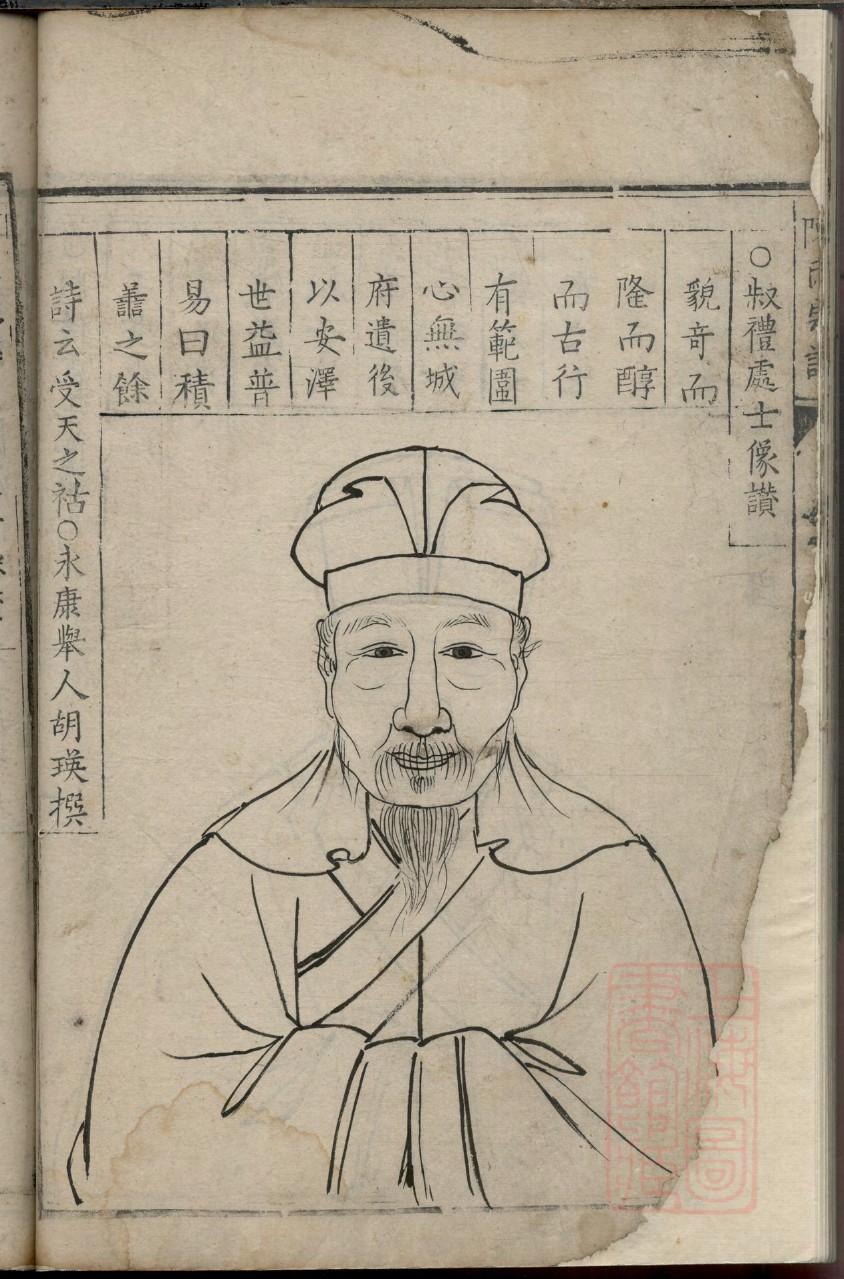 ○叔禮處士像讃
貌竒而
隆而醇
而古行
有範圍
心無城
府遺後
以安澤
世益普
易曰積
善之餘
詩云受天之祜○永康舉人胡瑛撰